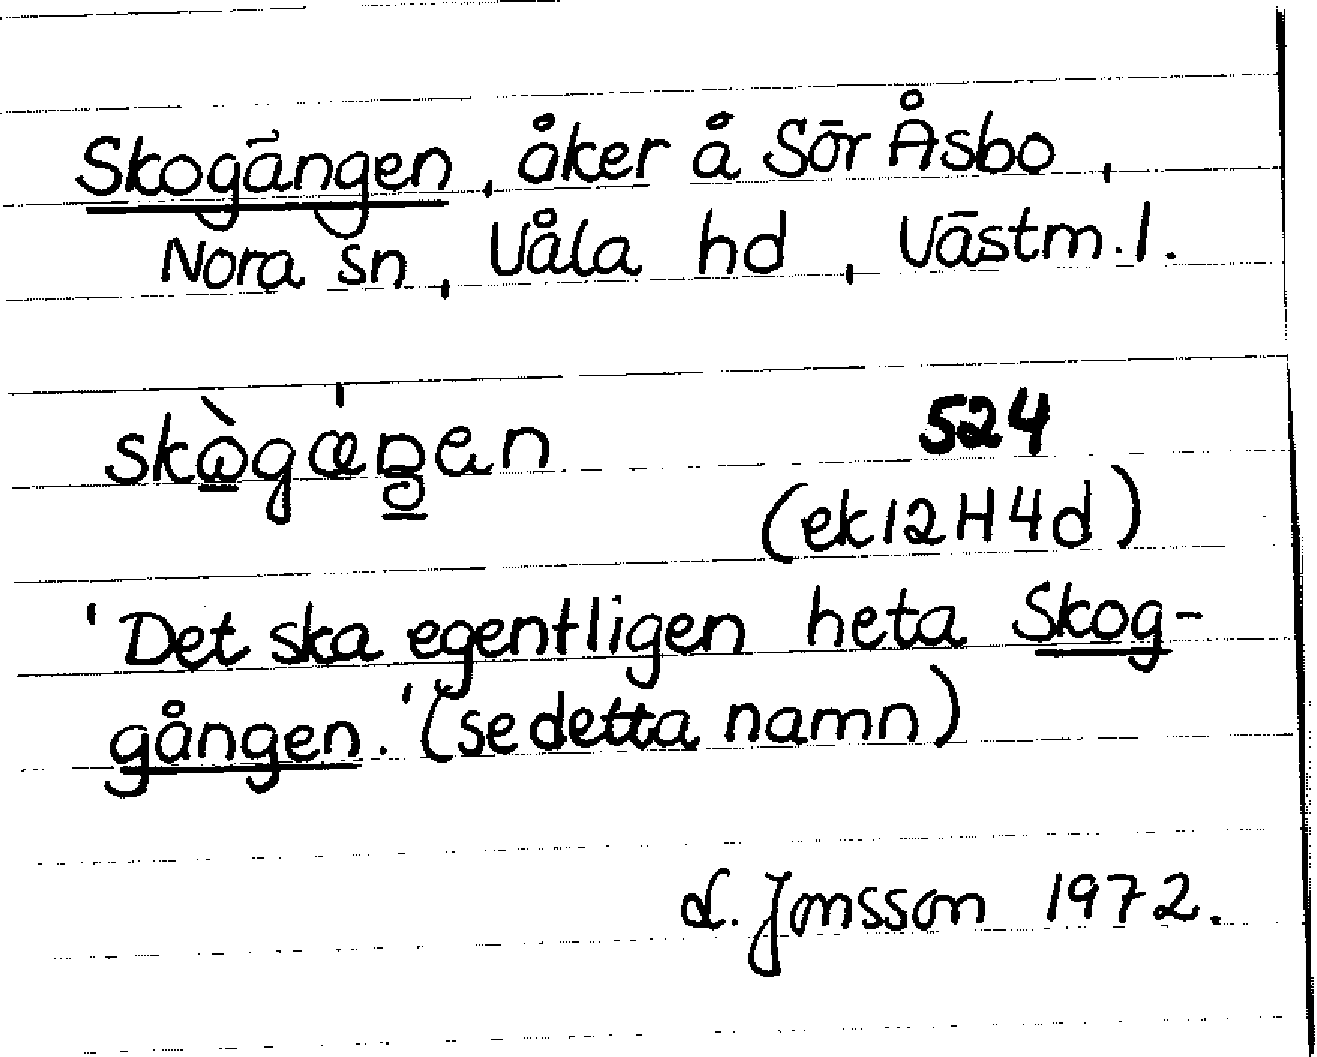 Skogängen, åker å Sör Åsbo,
Nora sn, Våla hd, Västm. l.
524
(ek 12H4d)
'Det ska egentligen heta Skog-
gången.' (se detta namn)
Jonsson 1972.